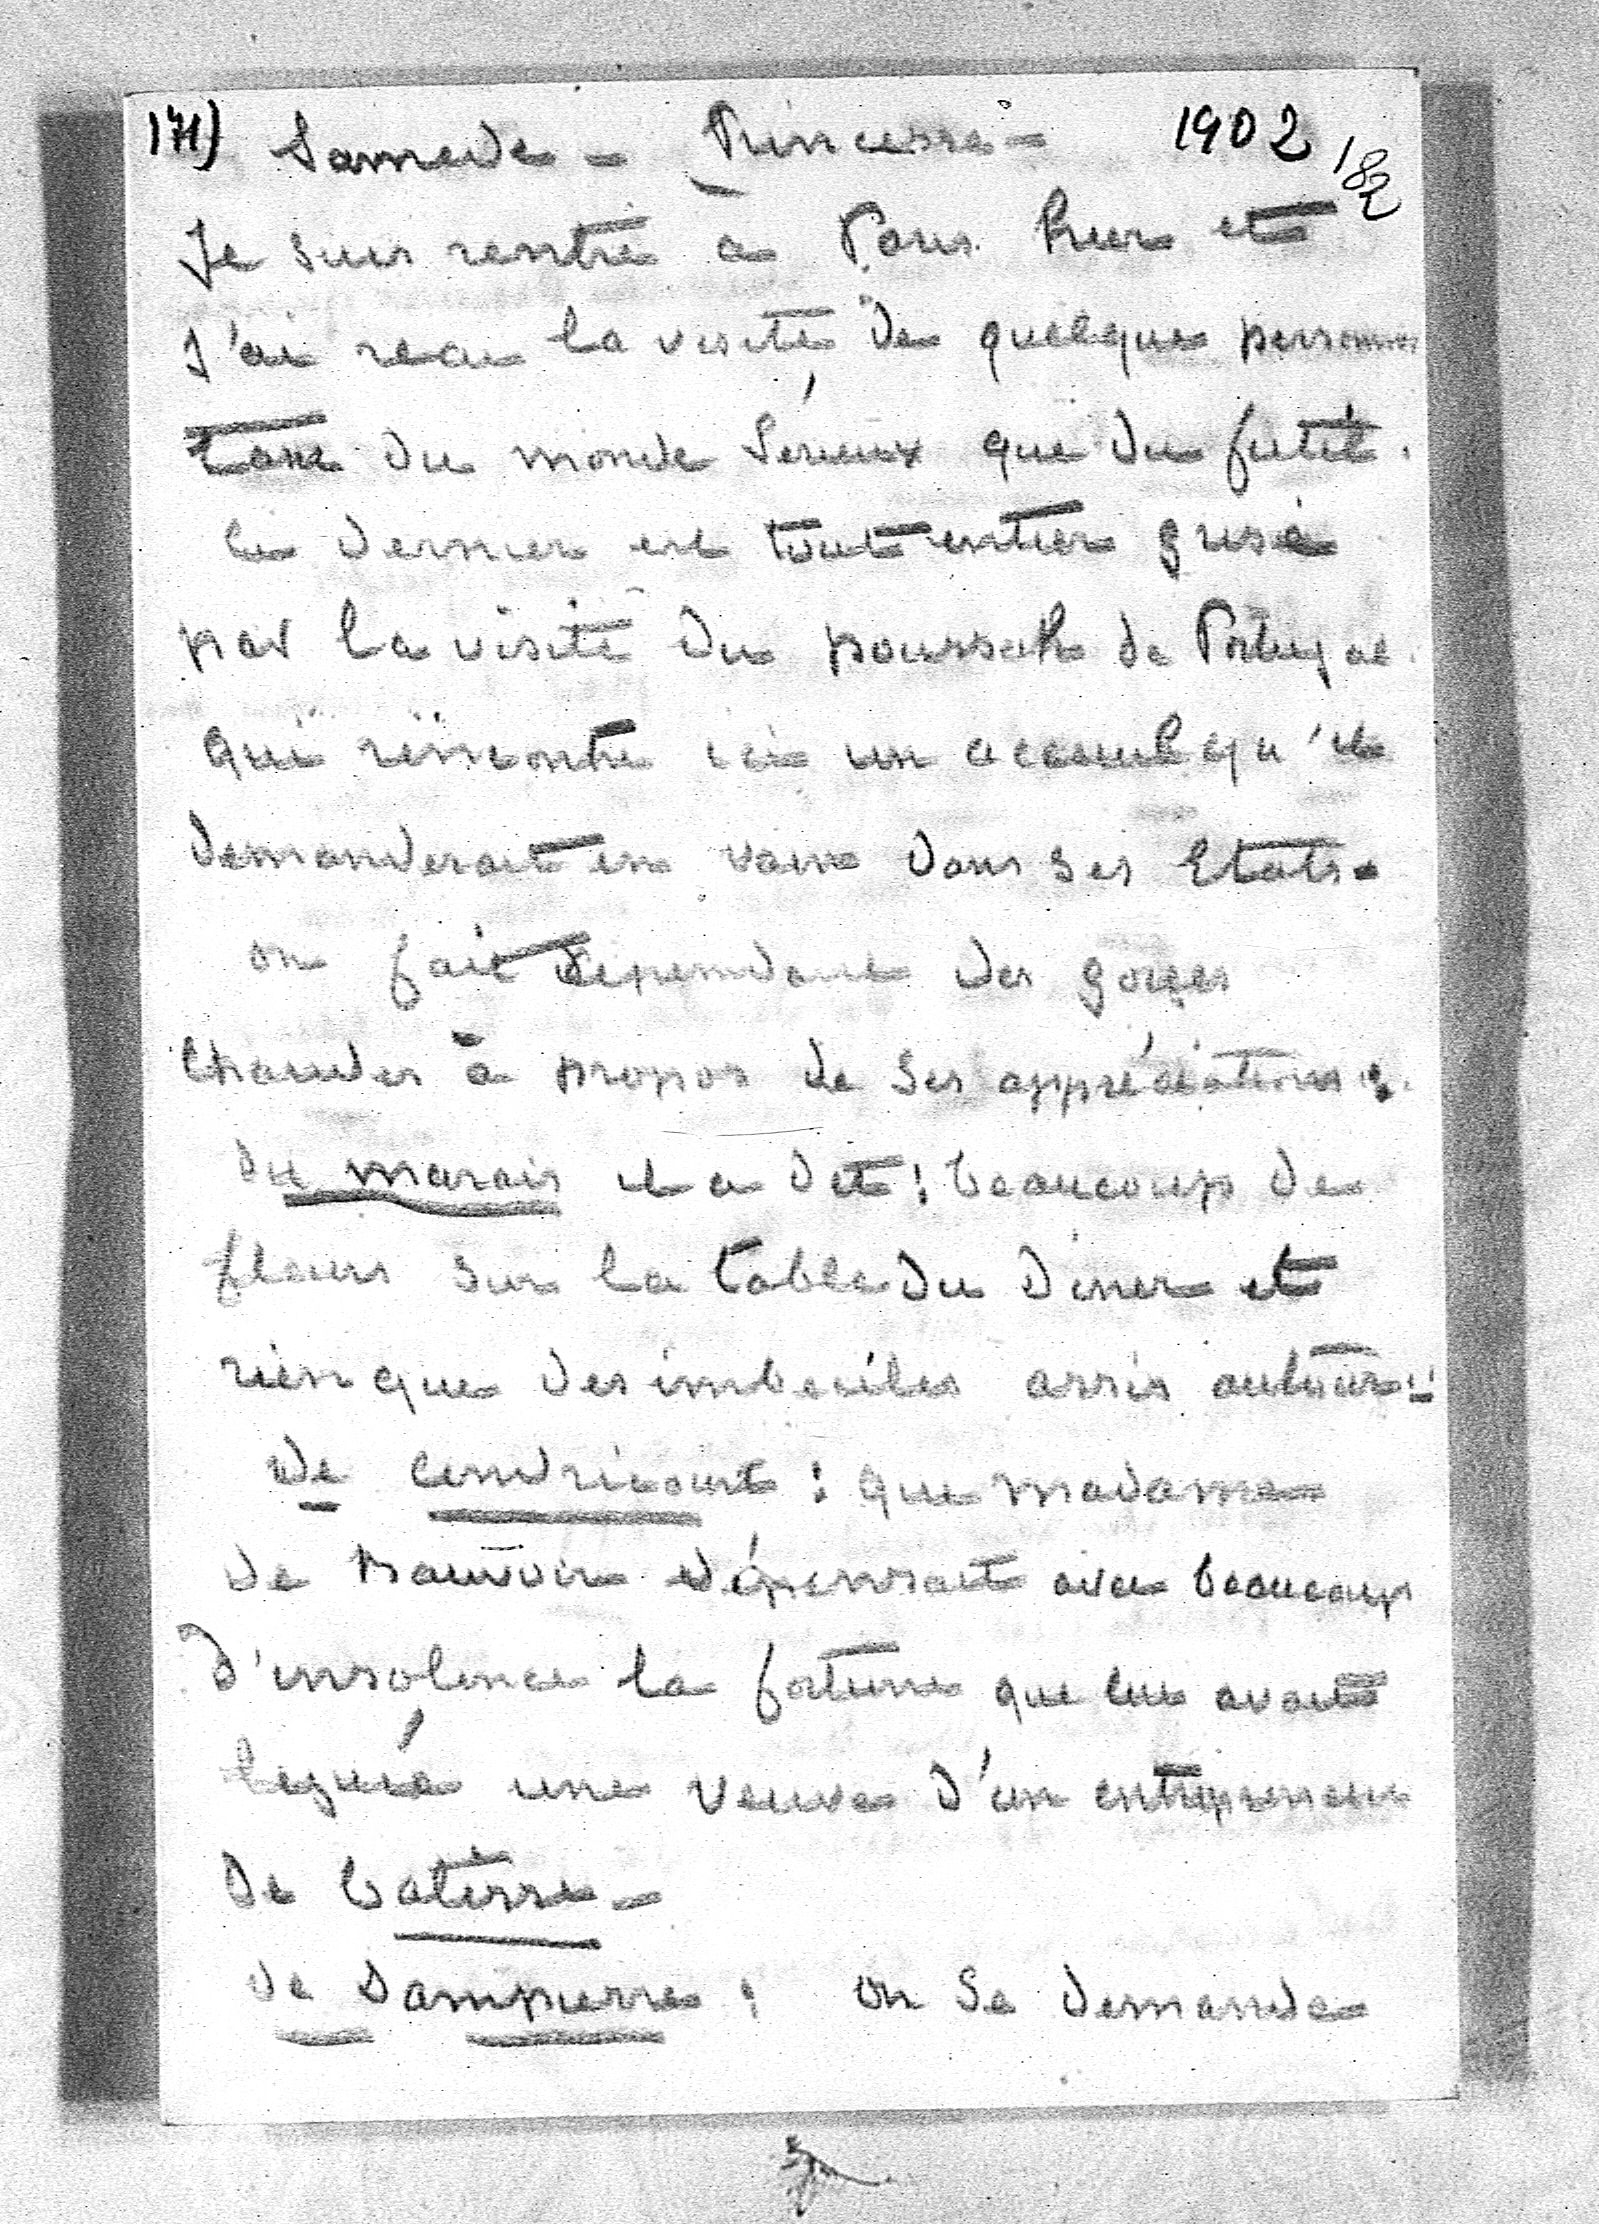 171) Samedi - Princesse - 1902 182
Je suis rentré à Paris hier et
J'ai reçu la visite de quelques personnes
tant du monde sérieux que du futile.
Ce dernier est tout entier grisé
par la visite du poussah de Portugal
qui rencontre ici un accueil qu'il
demanderait en vain dans ses Etats.
on fait cependant des gorges
chaudes à propos de ses appréciations :
Du marais il a dit : beaucoup de
fleurs sur la table du diner et
rien que des imbeciles assis autour !!
de Gendricourt : que madame
de dépensait avec beaucoup
d'insolence la fortune que lui avait
léguée une veuve d'un entrepreneur
de batisse -
de Sampierre : on se demande